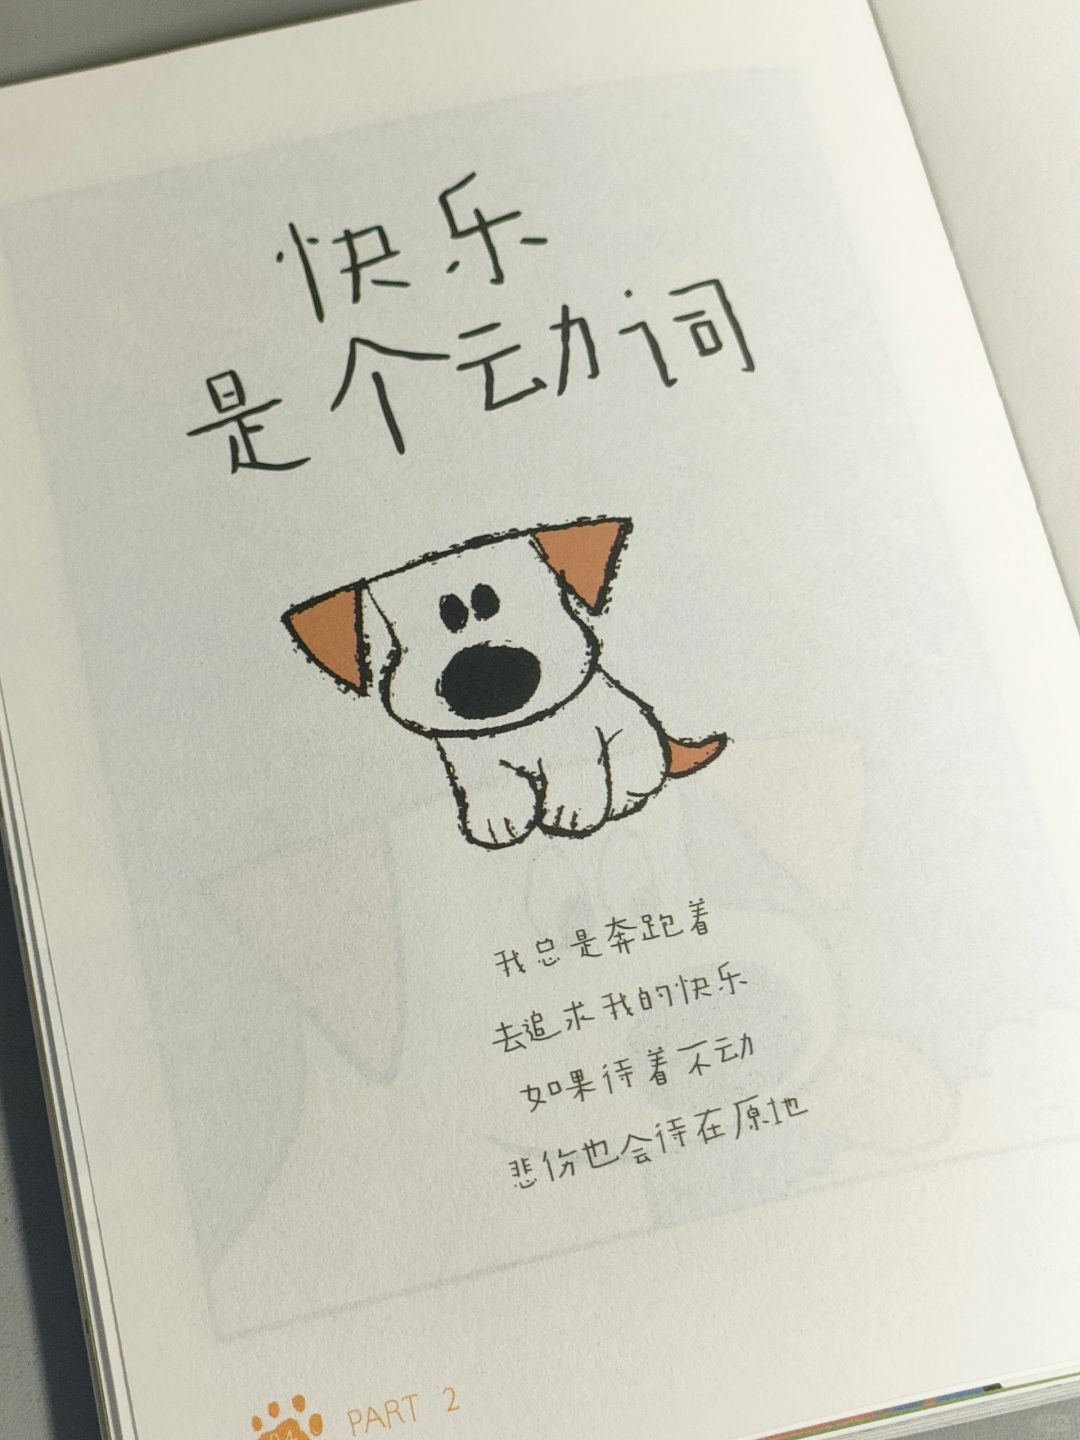 快乐
是个动词
我总是奔跑着
去追求我的快乐
如果待着不动
悲伤也会待在原地
PART 2